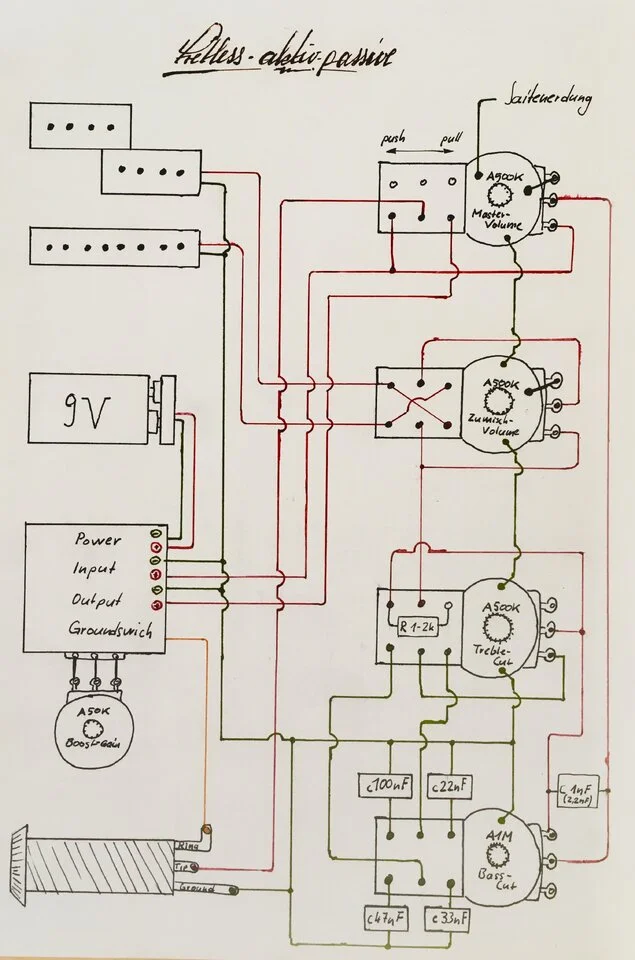 Fretless-aktiv-passive
Saitenerdung
push pull
A500K
Master-
Volume
9V
A500K
Zumisch-
Volume
Power
Input
Output
Groundswich
A500K
Treble-
Cut
R 1-2k
A50K
Boost-Gain
c100nF
c22nF
C 1nF
(2,2nF)
A1M
Bass-
Cut
Ring
Tip
Ground
c47nF
c33nF